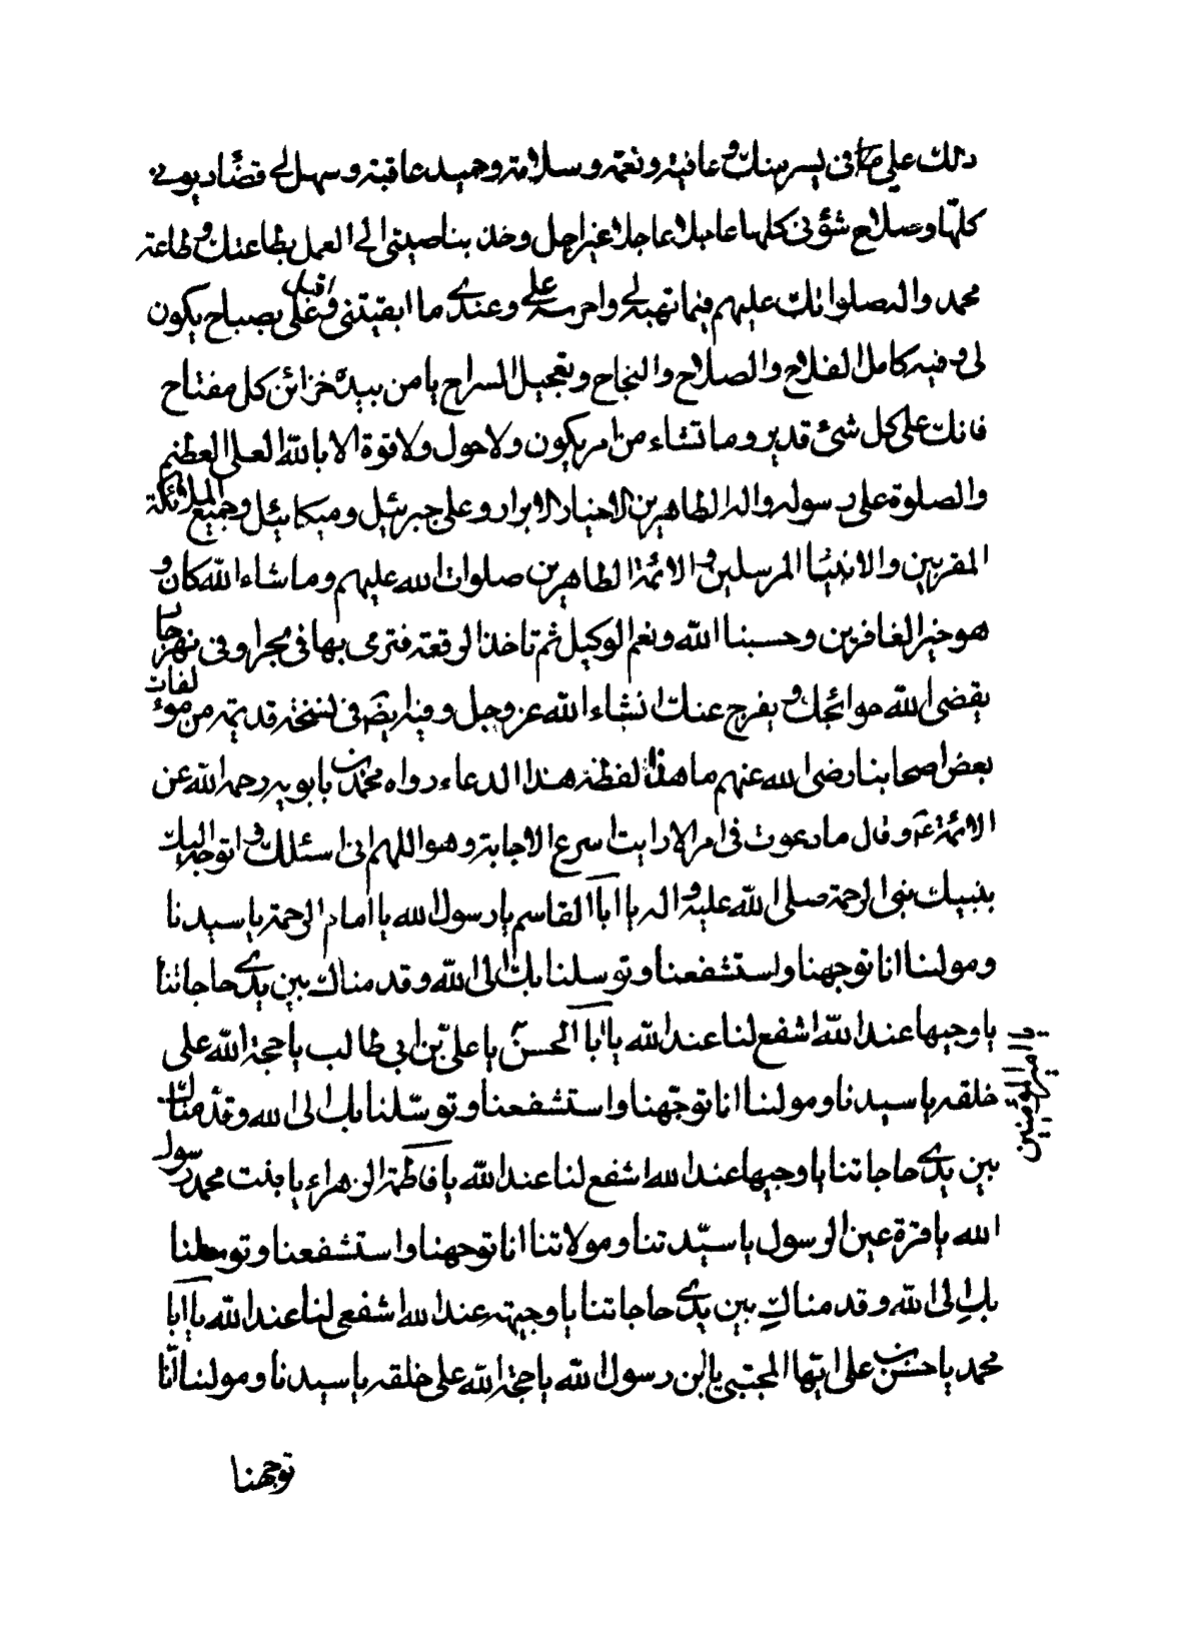 ذلك على ما فى يسر منك و عافية و نعمة و سلامة و حميد عاقبة و سهل لى قضاء ديونى
كلّها و صلاح شؤنى كلها عاجلا عاجلا غير اجل و خذ بناصيتى الى العمل بطاعتك و طاعة
محمد و اله صلواتك عليهم فيما تهبه لى و احرسه على و عندى ما ابقيتنى و اقبل على بصباح يكون
لى و فيه كامل الفلاح و الصلاح و النجاح و تعجيل السراح يا من بيده خزائن كل مفتاح
فانك على كل شئ قدير و ما تشاء من امر يكون و لا حول و لا قوة الا بالله العلى العظيم
و الصلوة على رسوله و اله الطاهرين الاخيار الابرار و على جبرئيل و ميكائيل و جميع الملائكة
المقربين و الانبيا المرسلين و الائمة الطاهرين صلوات الله عليهم و ما شاء الله كان و
هو خير الغافرين و حسبنا الله و نعم الوكيل ثم تاخذ الرقعة فترمى بها فى بحر او فى نهر جار
يقضى الله حوائجك و يفرج عنك انشاء الله عز و جل و فيه ايضً فى نسخة قديمة من مؤلفات
بعض اصحابنا رضى الله عنهم ما هذا لفظه هذا الدعاء رواه محمد بن بابويه رحمه الله عن
الائمة ع و قال ما دعوت فى امر الا رايت اسرع الاجابة و هو اللهم انى اسئلك و اتوجه اليك
بنبيك نبى الرحمة صلى الله عليه و اله يا ابا القاسم يا رسول الله يا امام الرحمة يا سيدنا
و مولنا انا توجهنا و استشفعنا و توسلنا بك الى الله و قدمناك بين يدى حاجاتنا
يا وجيها عند الله اشفع لنا عند الله يا ابا الحسن يا على بن ابى طالب يا حجة الله على
يا امير المؤمنين
خلقه يا سيدنا و مولنا انا توجّهنا و استشفعنا و توسّلنا بك الى الله و قدّمناك
بين يدى حاجاتنا يا وجيها عند الله اشفع لنا عند الله يا فاطمة الزهراء يا بنت محمد رسول
الله يا قرة عين الرسول يا سيّدتنا و مولاتنا انا توجهنا و استشفعنا و توسلنا
بكِ الى الله و قدمناكِ بين يدى حاجاتنا يا وجيهة عند الله اشفعى لنا عند الله يا ابا
محمد يا حسن بن على ايّها المجتبى يا ابن رسول الله يا حجة الله على خلقه يا سيدنا و مولنا انّا
توجهنا